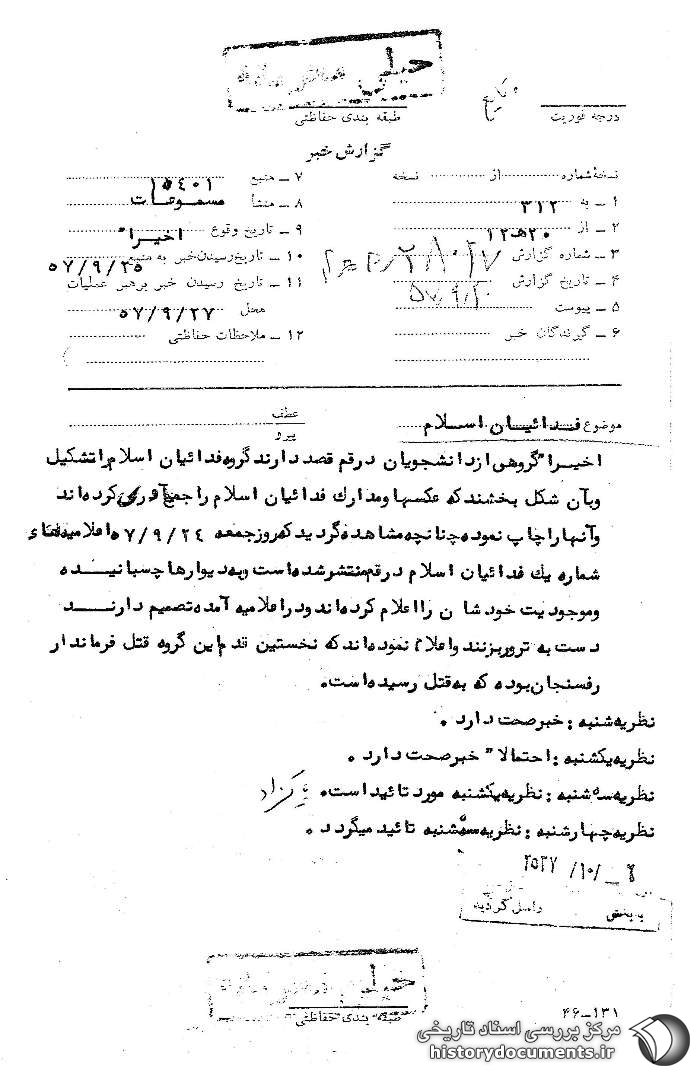 خیلی
طبقه بندی حفاظتی
درجه فوریت
گزارش خبر
نسخهٔ شماره از نسخه
۱ ــ به ۳۱۲
۲ ــ از ۲۰هـ۱۲
۳ ــ شماره گزارش
۴ ــ تاریخ گزارش
۵ ــ پیوست
۶ ــ گیرندگان خبر
۷ ــ منبع ۱۵۴۰۱
۸ ــ منشأ مسموعات
۹ ــ تاریخ وقوع اخیرا"
۱۰ ــ تاریخ رسیدن خبر به منبع ۵۷/۹/۲۵
۱۱ ــ تاریخ رسیدن خبر برهبر عملیات
محل ۵۷/۹/۲۷
۱۲ ــ ملاحظات حفاظتی
موضوع فدائیان اسلام
عطف
پیرو
اخیرا" گروهی از دانشجویان درقم قصد دارند گروه فدائیان اسلام را تشکیل
وبآن شکل بخشند که عکسها ومدارك فدائیان اسلام را جمع آوری کرده اند
وآنها را چاپ نموده چنانچه مشاهده گردید که روز جمعه ۵۷/۹/۲۴ اعلامیه های
شماره یك فدائیان اسلام درقم منتشر شده است وبه دیوارها چسبانیده
وموجودیت خودشان را اعلام کرده اند ودر اعلامیه آمده تصمیم دارند
دست به ترور بزنند واعلام نموده اند که نخستین قدم این گروه قتل فرماندار
رفسنجان بوده که به قتل رسیده است.
نظریه شنبه : خبرصحت دارد .
نظریه یکشنبه : احتمالا" خبرصحت دارد .
نظریه سه شنبه : نظریه یکشنبه مورد تائید است.
نظریه چهارشنبه : نظریه سه شنبه تائید میگردد .
۲۵۳۷ /۱۰/ ــ ۶
به بخش
واصل گردید
خیلی
طبقه بندی حفاظتی
۴۶ــ۱۳۱
مرکز بررسی اسناد تاریخی
historydocuments.ir